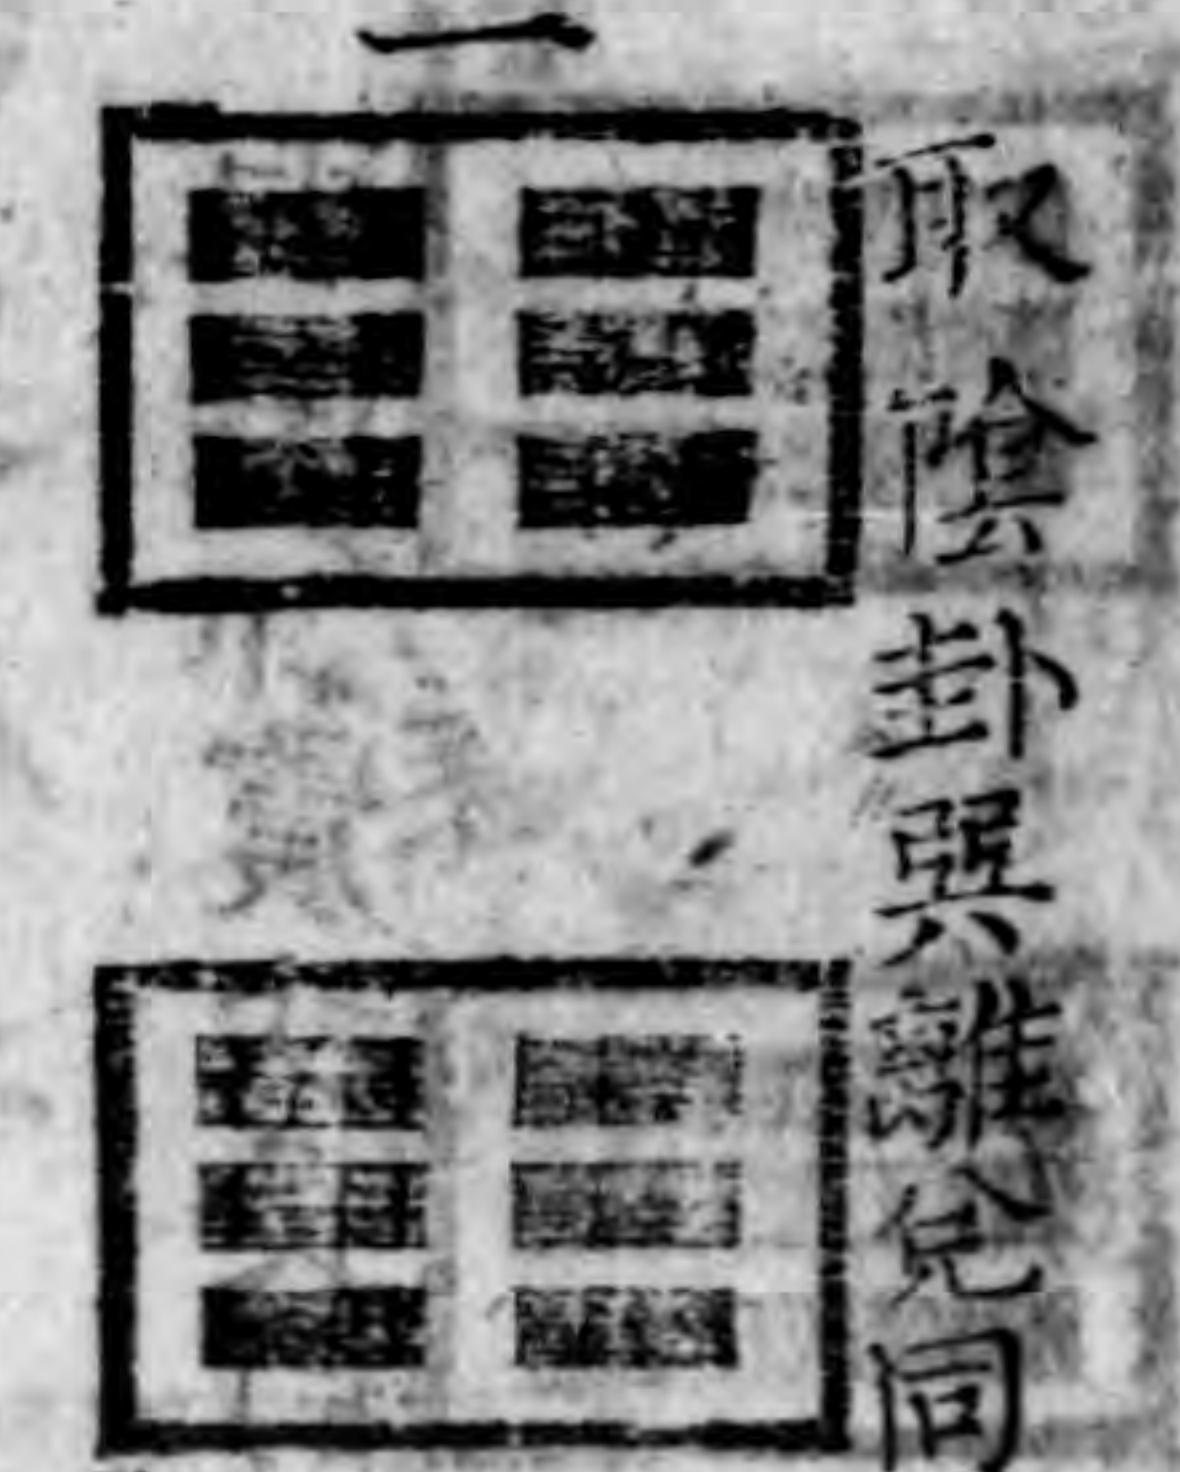 取陰卦巽離兌同
一